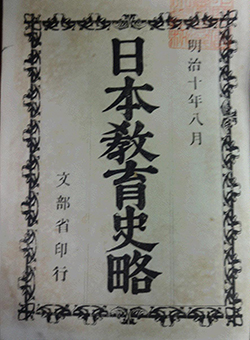 明治十年八月
日本教育史略
文部省印行